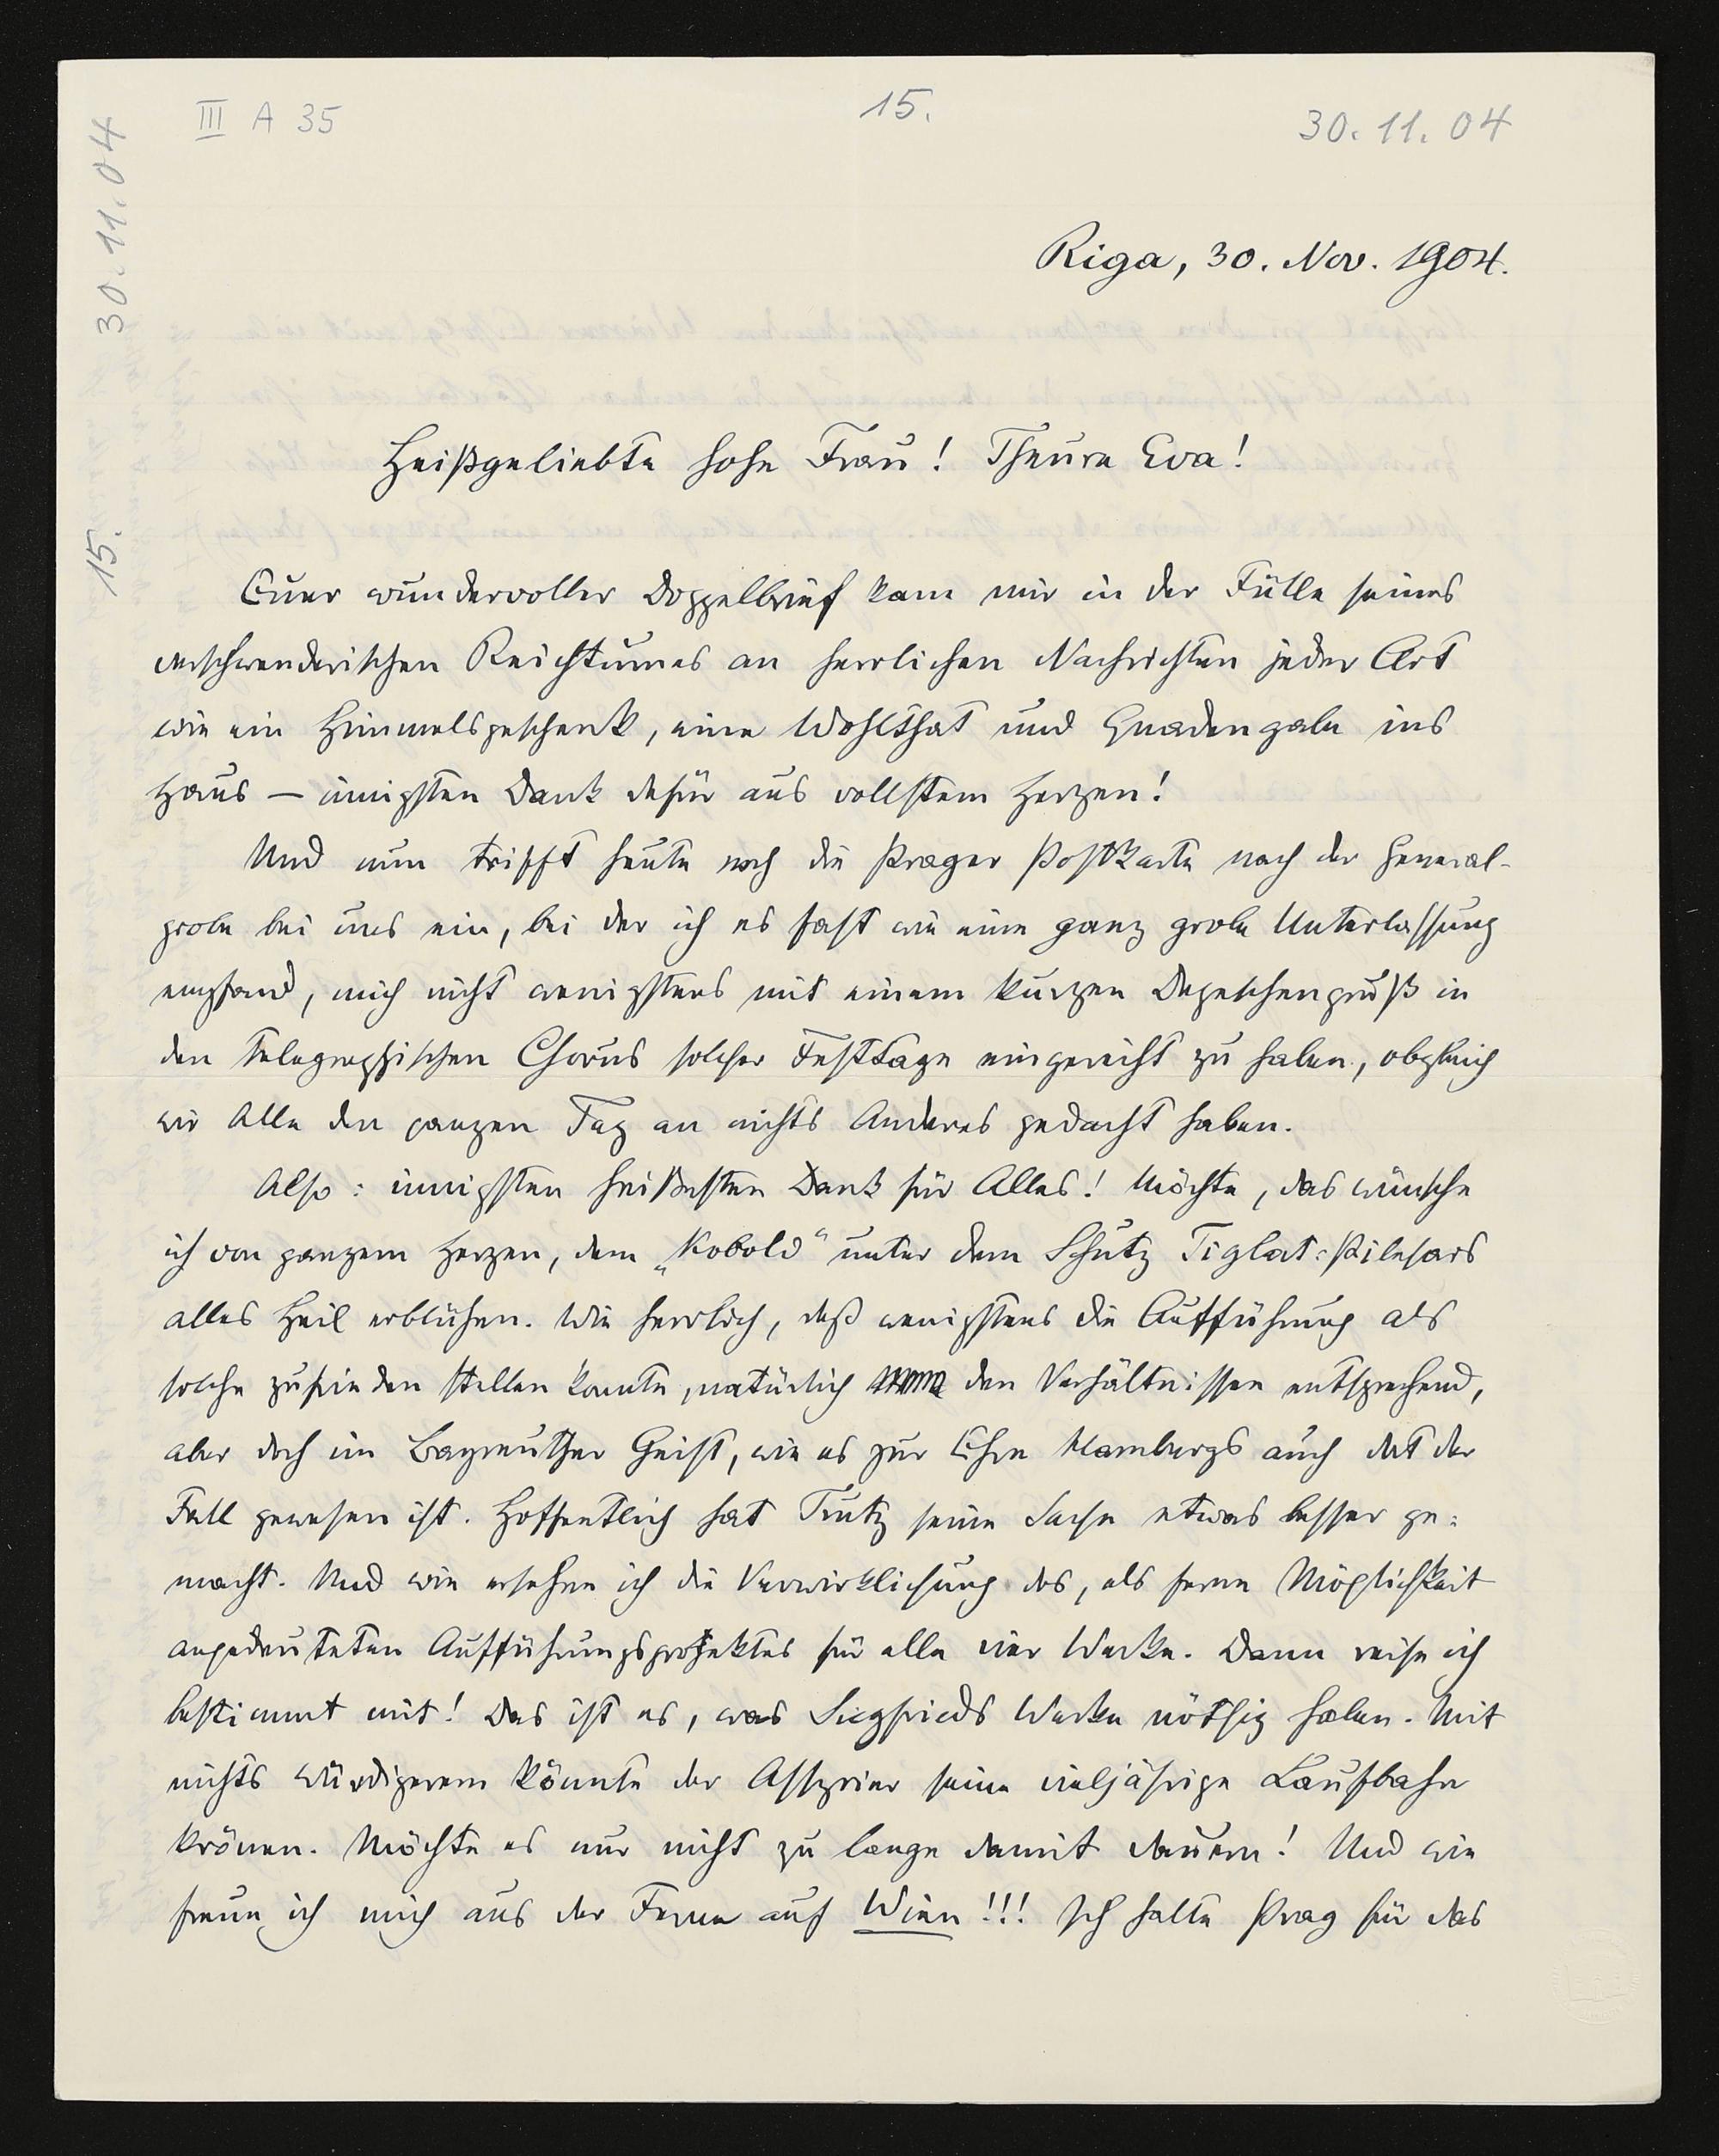 III A 35
15.
30.11.04
30.11.04
15.
Riga, 30. Nov. 1904.
Heißgeliebte hohe Frau! Theure Eva!
Euer wundervoller Doppelbrief kam mir in der Fülle seines
verschwenderischen Reichtumes an herrlichen Nachrichten jeder Art
wie ein Himmelsgeschenk, eine Wohlthat und Gnadengabe ins
Haus — innigsten Dank dafür aus vollstem Herzen!
Und nun trifft heute noch die Prager Postkarte nach der General-
probe bei uns ein, bei der ich es fast wie eine ganz grobe Unterlassung
empfand, mich nicht wenigstens mit einem kurzen Depeschengruß in
den telegraphischen Chorus solcher Festtage eingereiht zu haben, obgleich
wir Alle den ganzen Tag an nichts Anderes gedacht haben.
Also: innigsten heißesten Dank für Alles! Möchte, das wünsche
ich von ganzem Herzen, dem „Kobold“ unter dem Schutz Tiglat=Pilesars
alles Heil erblühen. Wie herrlich, daß wenigstens die Aufführung als
solche zufrieden stellen konnte, natürlich den Verhältnissen entsprechend,
aber doch im Bayreuther Geist, wie es zur Ehre Hamburgs auch dort der
Fall gewesen ist. Hoffentlich hat Trutz seine Sache etwas besser ge=
macht. Und wie ersehne ich die Verwirklichung des, als ferne Möglichkeit
angedeuteten Aufführungsprojektes für alle vier Werke. Dann reise ich
bestimmt mit! Das ist es, was Siegfrieds Werke nöthig haben. Mit
nichts würdigerem könnte der Assyrier seine vieljährige Laufbahn
krönen. Möchte es nur nicht zu lange damit dauern! Und wie
freue ich mich aus der Ferne auf Wien!!! Ich halte Prag für das